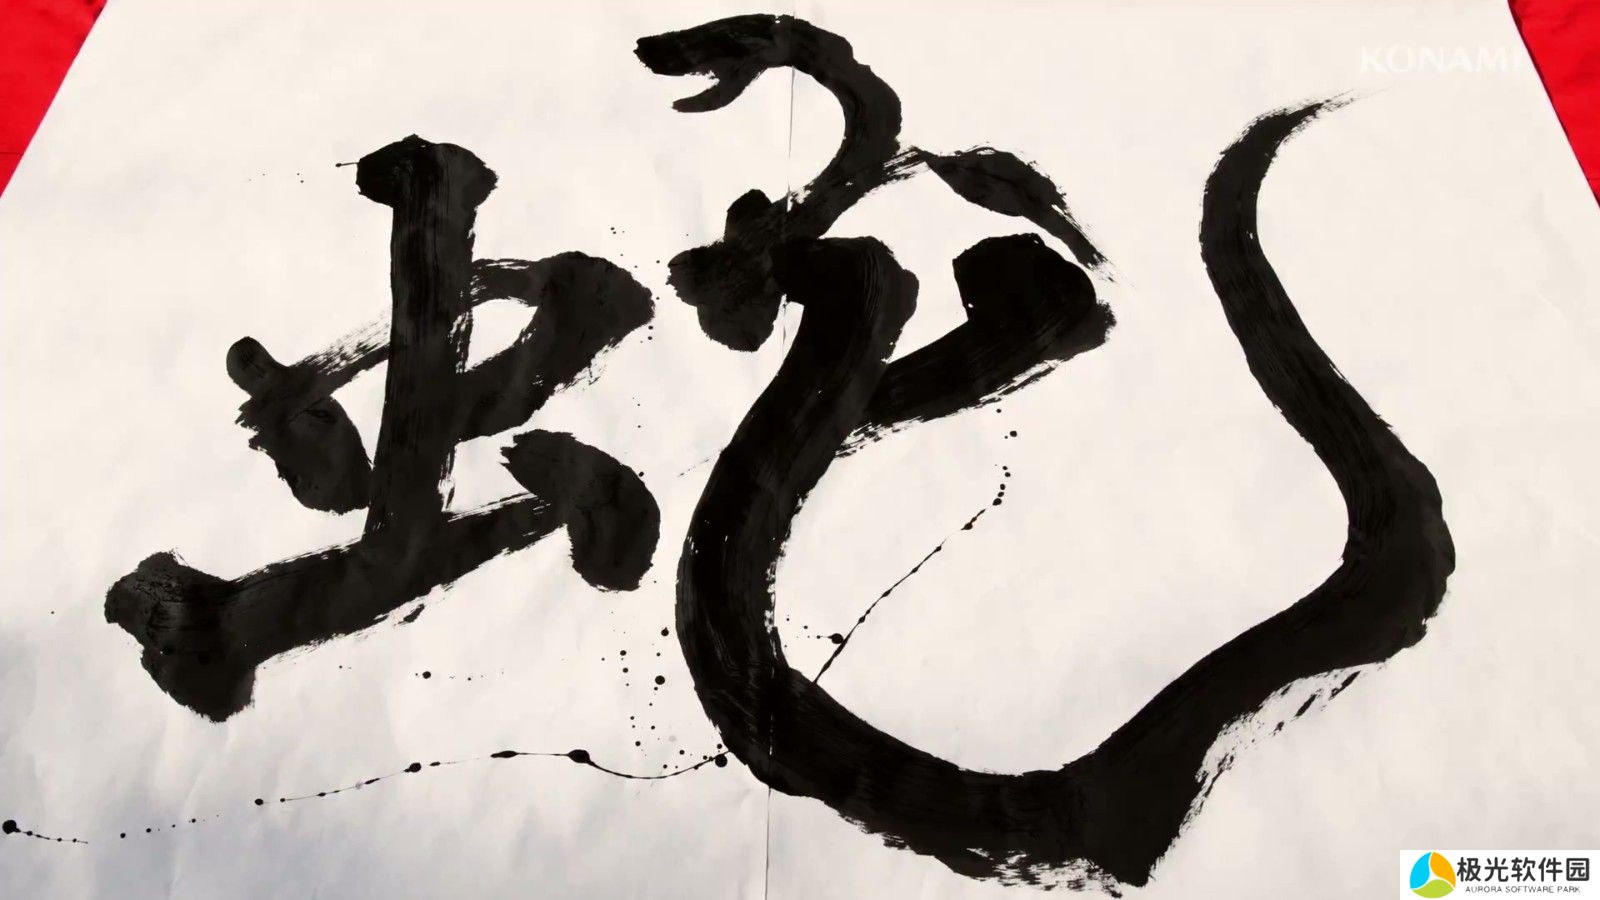 KONAMI
蛇
极光软件园
AURORA SOFTWARE PARK